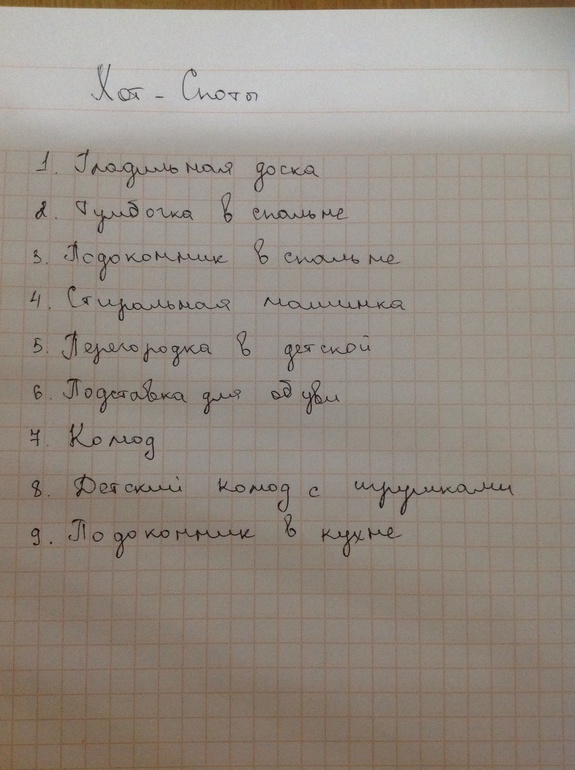 Хот - Споты
1. Гладильная доска
2. Тумбочка в спальне
3. Подоконник в спальне
4. Стиральная машинка
5. Перегородка в детской
6. Подставка для обуви
7. Комод
8. Детский комод с игрушками
9. Подоконник в кухне